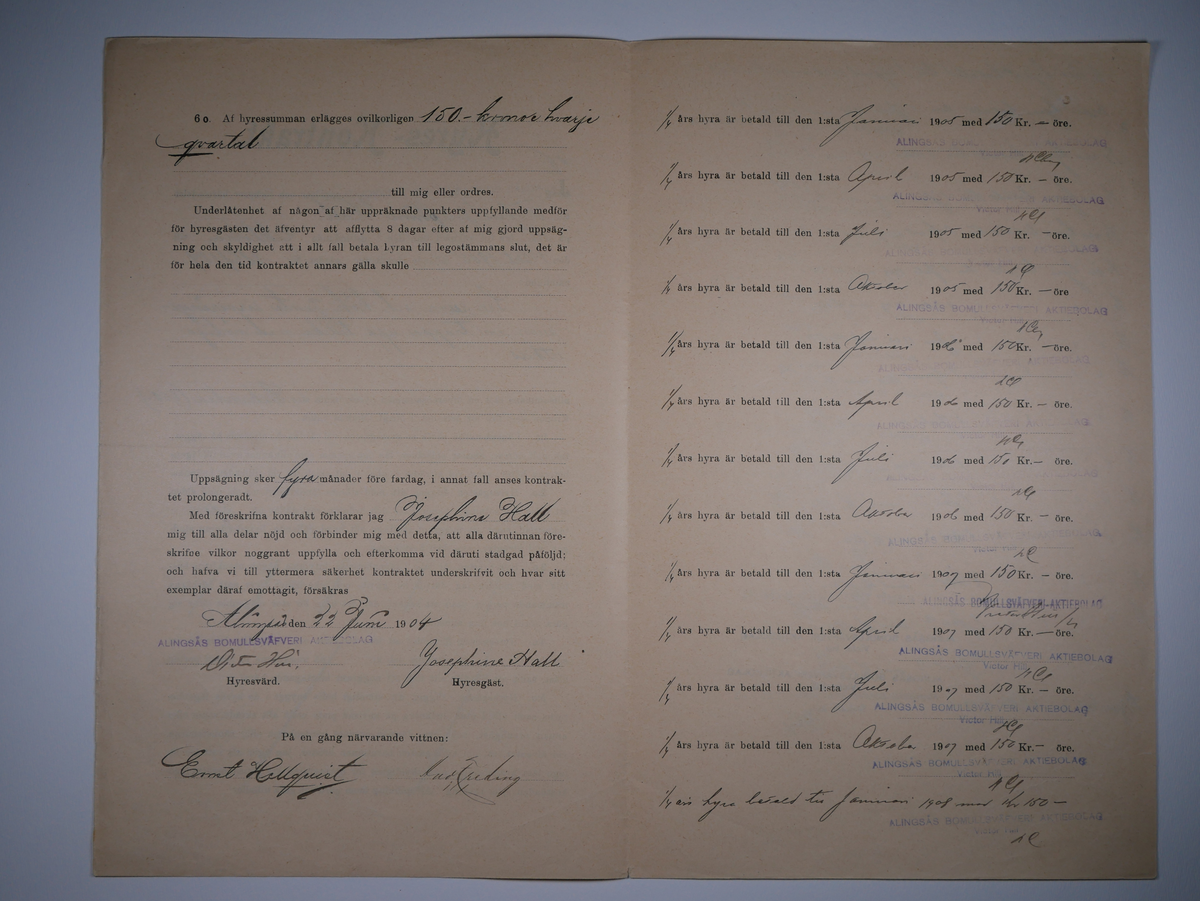 6 o. Af hyressumman erlägges ovilkorligen 150.- kronor hvarje
qvartal
till mig eller ordres.
Underlåtenhet af någon af här uppräknade punkters uppfyllande medför
för hyresgästen det äfventyr att afflytta 8 dagar efter af mig gjord uppsäg-
ning och skyldighet att i allt fall betala hyran till legostämmans slut, det är
för hela den tid kontraktet annars gälla skulle
Uppsägning sker fyra månader före fardag, i annat fall anses kontrak-
tet prolongeradt.
Med föreskrifna kontrakt förklarar jag Josephine Hall
mig till alla delar nöjd och förbinder mig med detta, att alla därutinnan före-
skrifne vilkor noggrant uppfylla och efterkomma vid däruti stadgad påföljd;
och hafva vi till yttermera säkerhet kontraktet underskrifvit och hvar sitt
exemplar däraf emottagit, försäkras
Alingsås den 22 Juni 1904
ALINGSÅS BOMULLSVÄFVERI AKTIEBOLAG
Josephine Hall
Hyresvärd. Hyresgäst.
På en gång närvarande vittnen:
Ernst Hellquist
1/4 års hyra är betald till den 1:sta Januari 1905 med 150 Kr. — öre.
ALINGSÅS BOMULLSVÄFVERI AKTIEBOLAG
Victor Hill
1/4 års hyra är betald till den 1:sta April 1905 med 150 Kr. — öre.
ALINGSÅS BOMULLSVÄFVERI AKTIEBOLAG
Victor Hill
1/4 års hyra är betald till den 1:sta Juli 1905 med 150 Kr. — öre.
1/4 års hyra är betald till den 1:sta Oktober 1905 med 150 Kr. — öre
ALINGSÅS BOMULLSVÄFVERI AKTIEBOLAG
Victor Hill
1/4 års hyra är betald till den 1:sta Januari 1906 med 150 Kr. — öre.
1/4 års hyra är betald till den 1:sta April 1906 med 150 Kr. — öre.
ALINGSÅS BOMULLSVÄFVERI AKTIEBOLAG
1/4 års hyra är betald till den 1:sta Juli 1906 med 150 Kr. — öre.
1/4 års hyra är betald till den 1:sta Oktober 1906 med 150 Kr. — öre.
ALINGSÅS BOMULLSVÄFVERI AKTIEBOLAG
1/4 års hyra är betald till den 1:sta Januari 1907 med 150 Kr. — öre.
ALINGSÅS BOMULLSVÄFVERI-AKTIEBOLAG
1/4 års hyra är betald till den 1:sta April 1907 med 150 Kr. — öre.
ALINGSÅS BOMULLSVÄFVERI AKTIEBOLAG
Victor Hill
1/4 års hyra är betald till den 1:sta Juli 1907 med 150 Kr. — öre.
ALINGSÅS BOMULLSVÄFVERI AKTIEBOLAG
Victor Hill
1/4 års hyra är betald till den 1:sta Oktober 1907 med 150 Kr. — öre.
ALINGSÅS BOMULLSVÄFVERI AKTIEBOLAG
Victor Hill
1/4 års hyra betald till Januari 1908 med Kr 150 —
ALINGSÅS BOMULLSVÄFVERI AKTIEBOLAG
Victor Hill